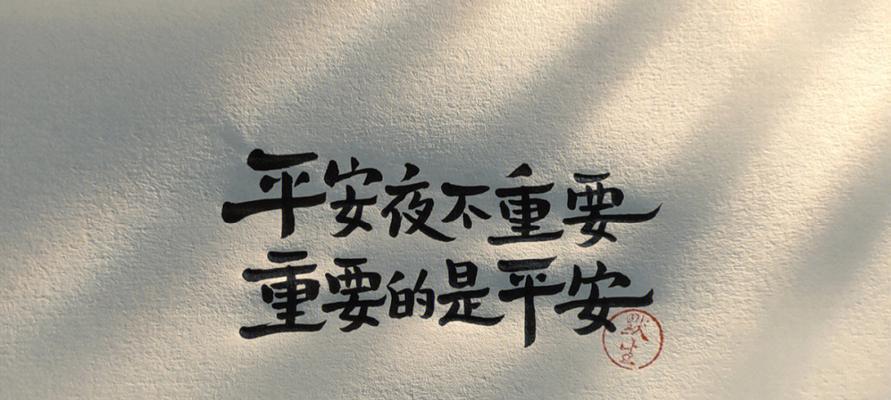 平安夜不重要
重要的是平安